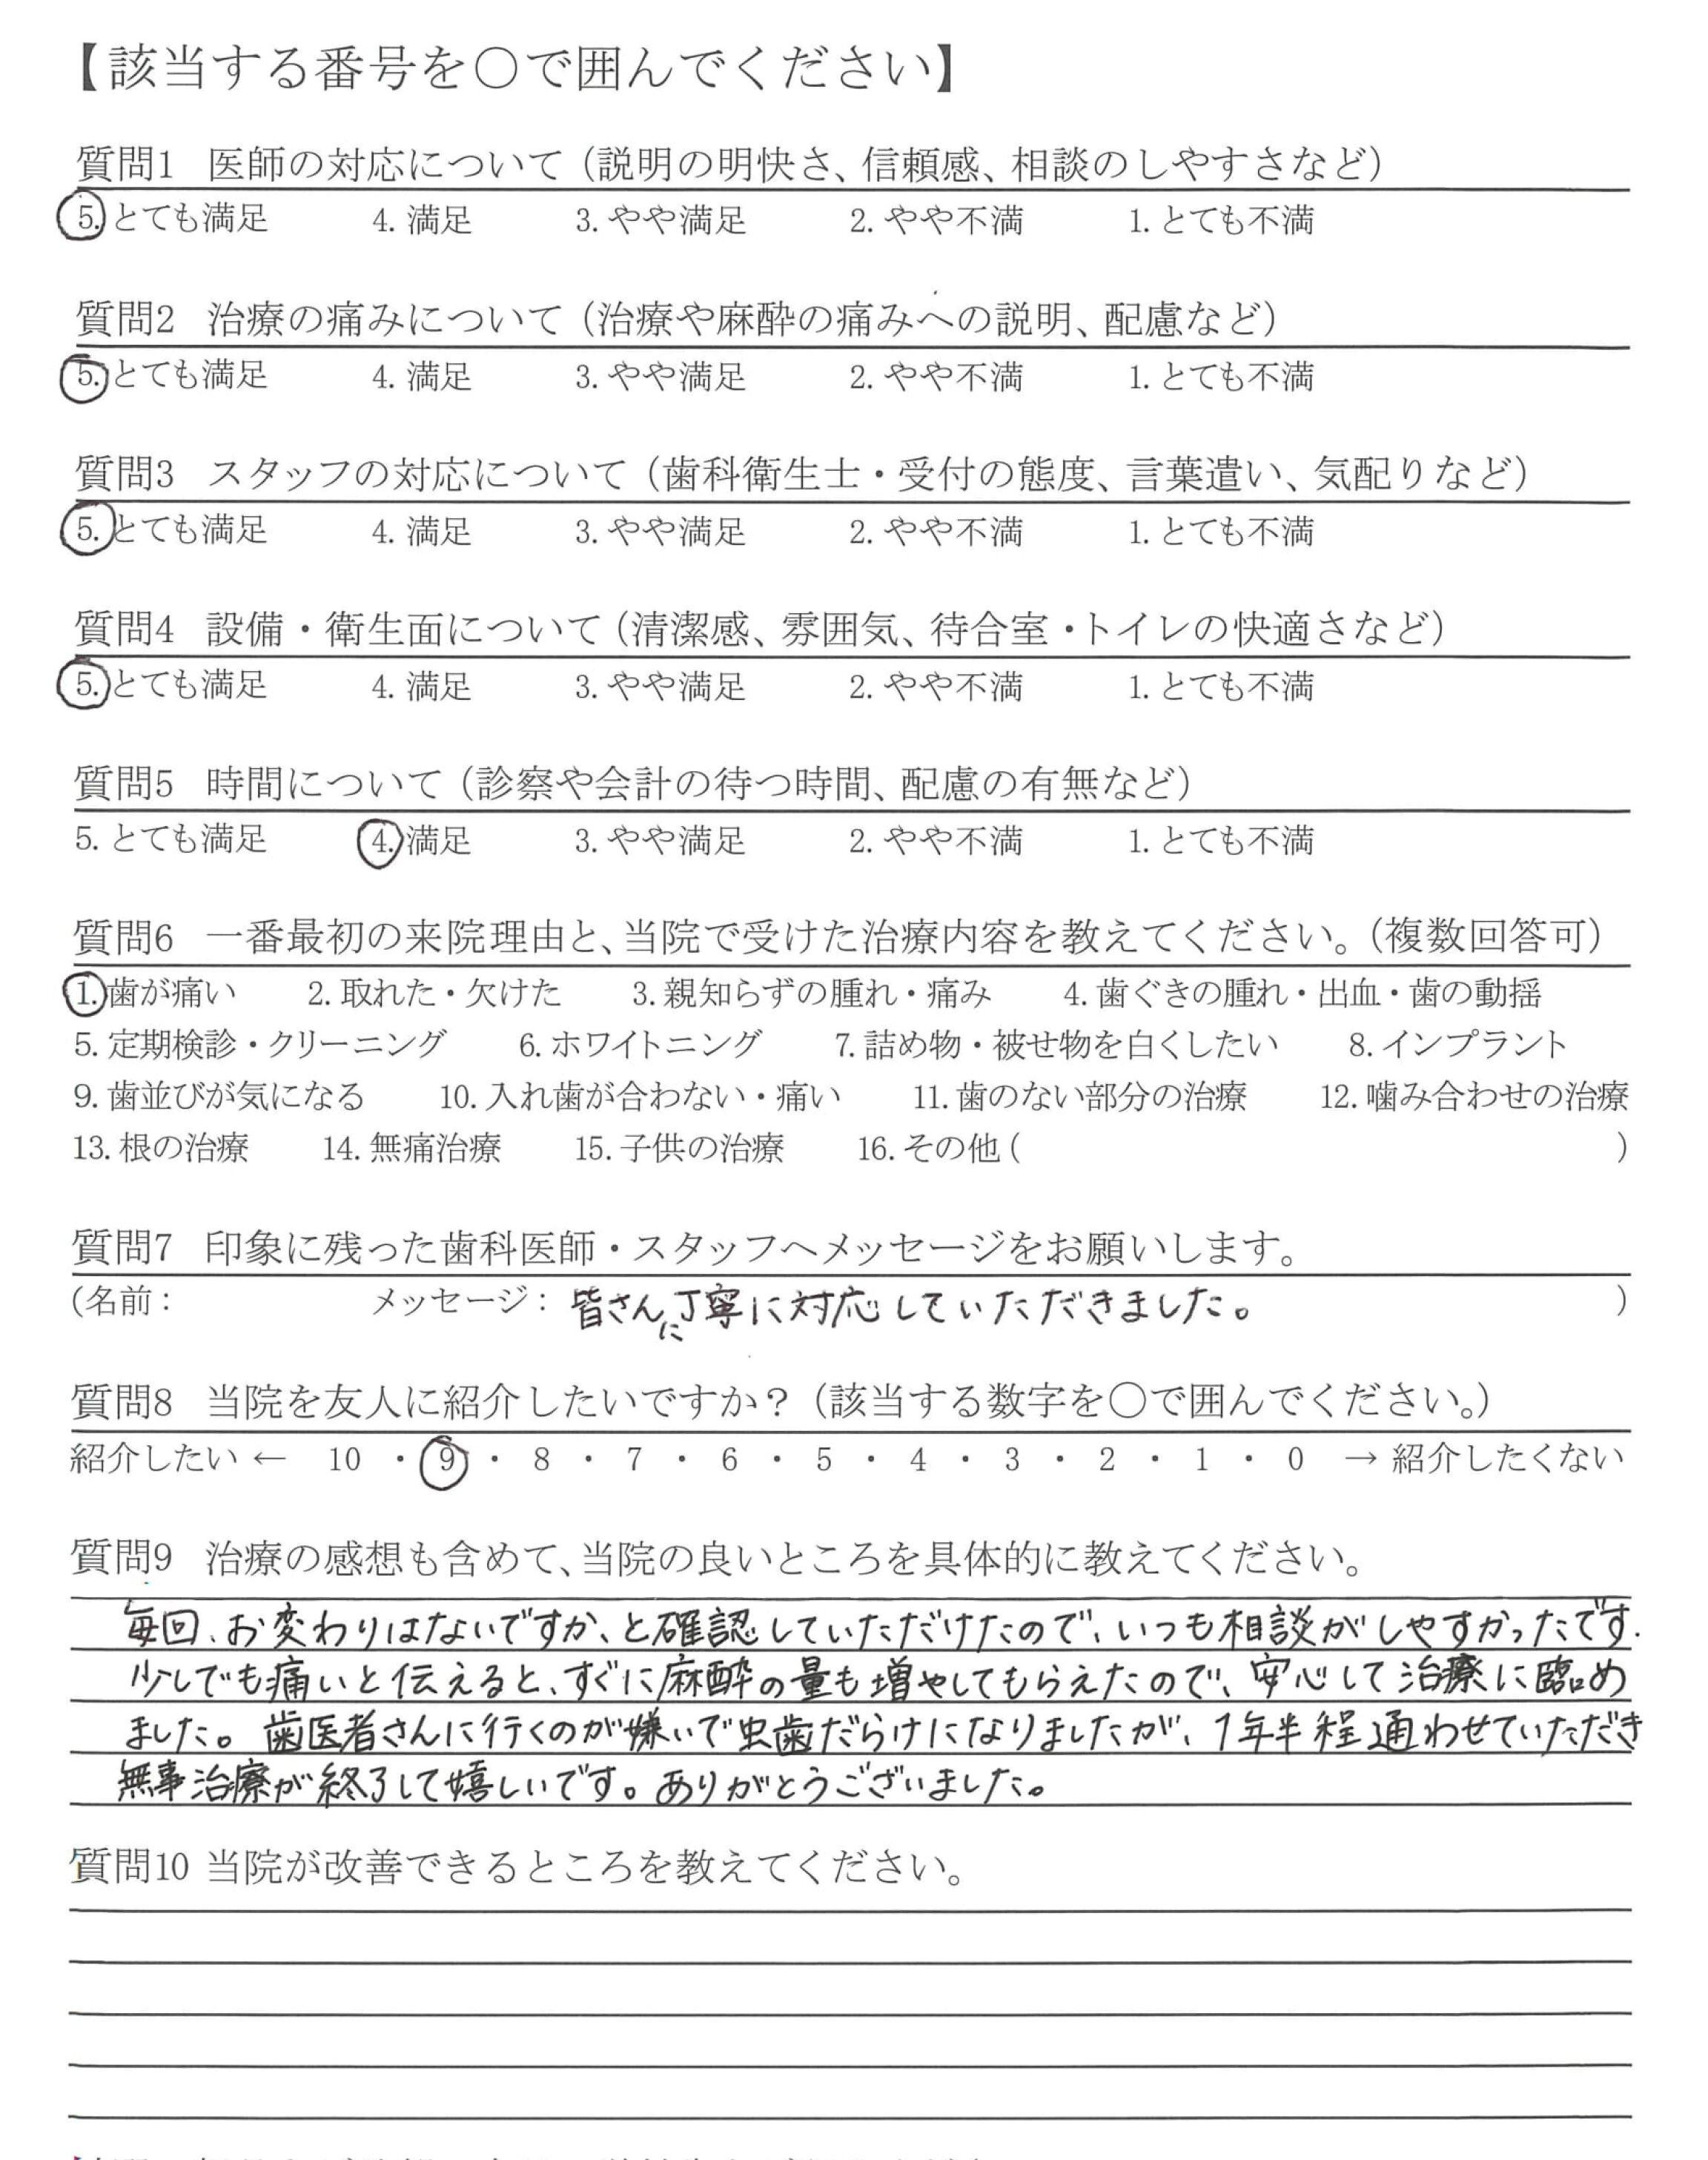 【該当する番号を○で囲んでください】
質問1 医師の対応について（説明の明快さ、信頼感、相談のしやすさなど）
5. とても満足 4. 満足 3. やや満足 2. やや不満 1. とても不満
質問2 治療の痛みについて（治療や麻酔の痛みへの説明、配慮など）
5. とても満足 4. 満足 3. やや満足 2. やや不満 1. とても不満
質問3 スタッフの対応について（歯科衛生士・受付の態度、言葉遣い、気配りなど）
5. とても満足 4. 満足 3. やや満足 2. やや不満 1. とても不満
質問4 設備・衛生面について（清潔感、雰囲気、待合室・トイレの快適さなど）
5. とても満足 4. 満足 3. やや満足 2. やや不満 1. とても不満
質問5 時間について（診察や会計の待つ時間、配慮の有無など）
5. とても満足 4. 満足 3. やや満足 2. やや不満 1. とても不満
質問6 一番最初の来院理由と、当院で受けた治療内容を教えてください。（複数回答可）
1. 歯が痛い 2. 取れた・欠けた 3. 親知らずの腫れ・痛み 4. 歯ぐきの腫れ・出血・歯の動揺
5. 定期検診・クリーニング 6. ホワイトニング 7. 詰め物・被せ物を白くしたい 8. インプラント
9. 歯並びが気になる 10. 入れ歯が合わない・痛い 11. 歯のない部分の治療 12. 噛み合わせの治療
13. 根の治療 14. 無痛治療 15. 子供の治療 16. その他（ ）
質問7 印象に残った歯科医師・スタッフへメッセージをお願いします。
（名前： メッセージ：皆さんに丁寧に対応していただきました。 ）
質問8 当院を友人に紹介したいですか？（該当する数字を○で囲んでください。）
紹介したい ← 10 ・ 9 ・ 8 ・ 7 ・ 6 ・ 5 ・ 4 ・ 3 ・ 2 ・ 1 ・ 0 → 紹介したくない
質問9 治療の感想も含めて、当院の良いところを具体的に教えてください。
毎回、お変わりはないですか、と確認していただけたので、いつも相談がしやすかったです.
少しでも痛いと伝えると、すぐに麻酔の量も増やしてもらえたので、安心して治療に臨め
ました。歯医者さんに行くのが嫌いで虫歯だらけになりましたが、1年半程通わせていただき
無事治療が終了して嬉しいです。ありがとうございました。
質問10 当院が改善できるところを教えてください。